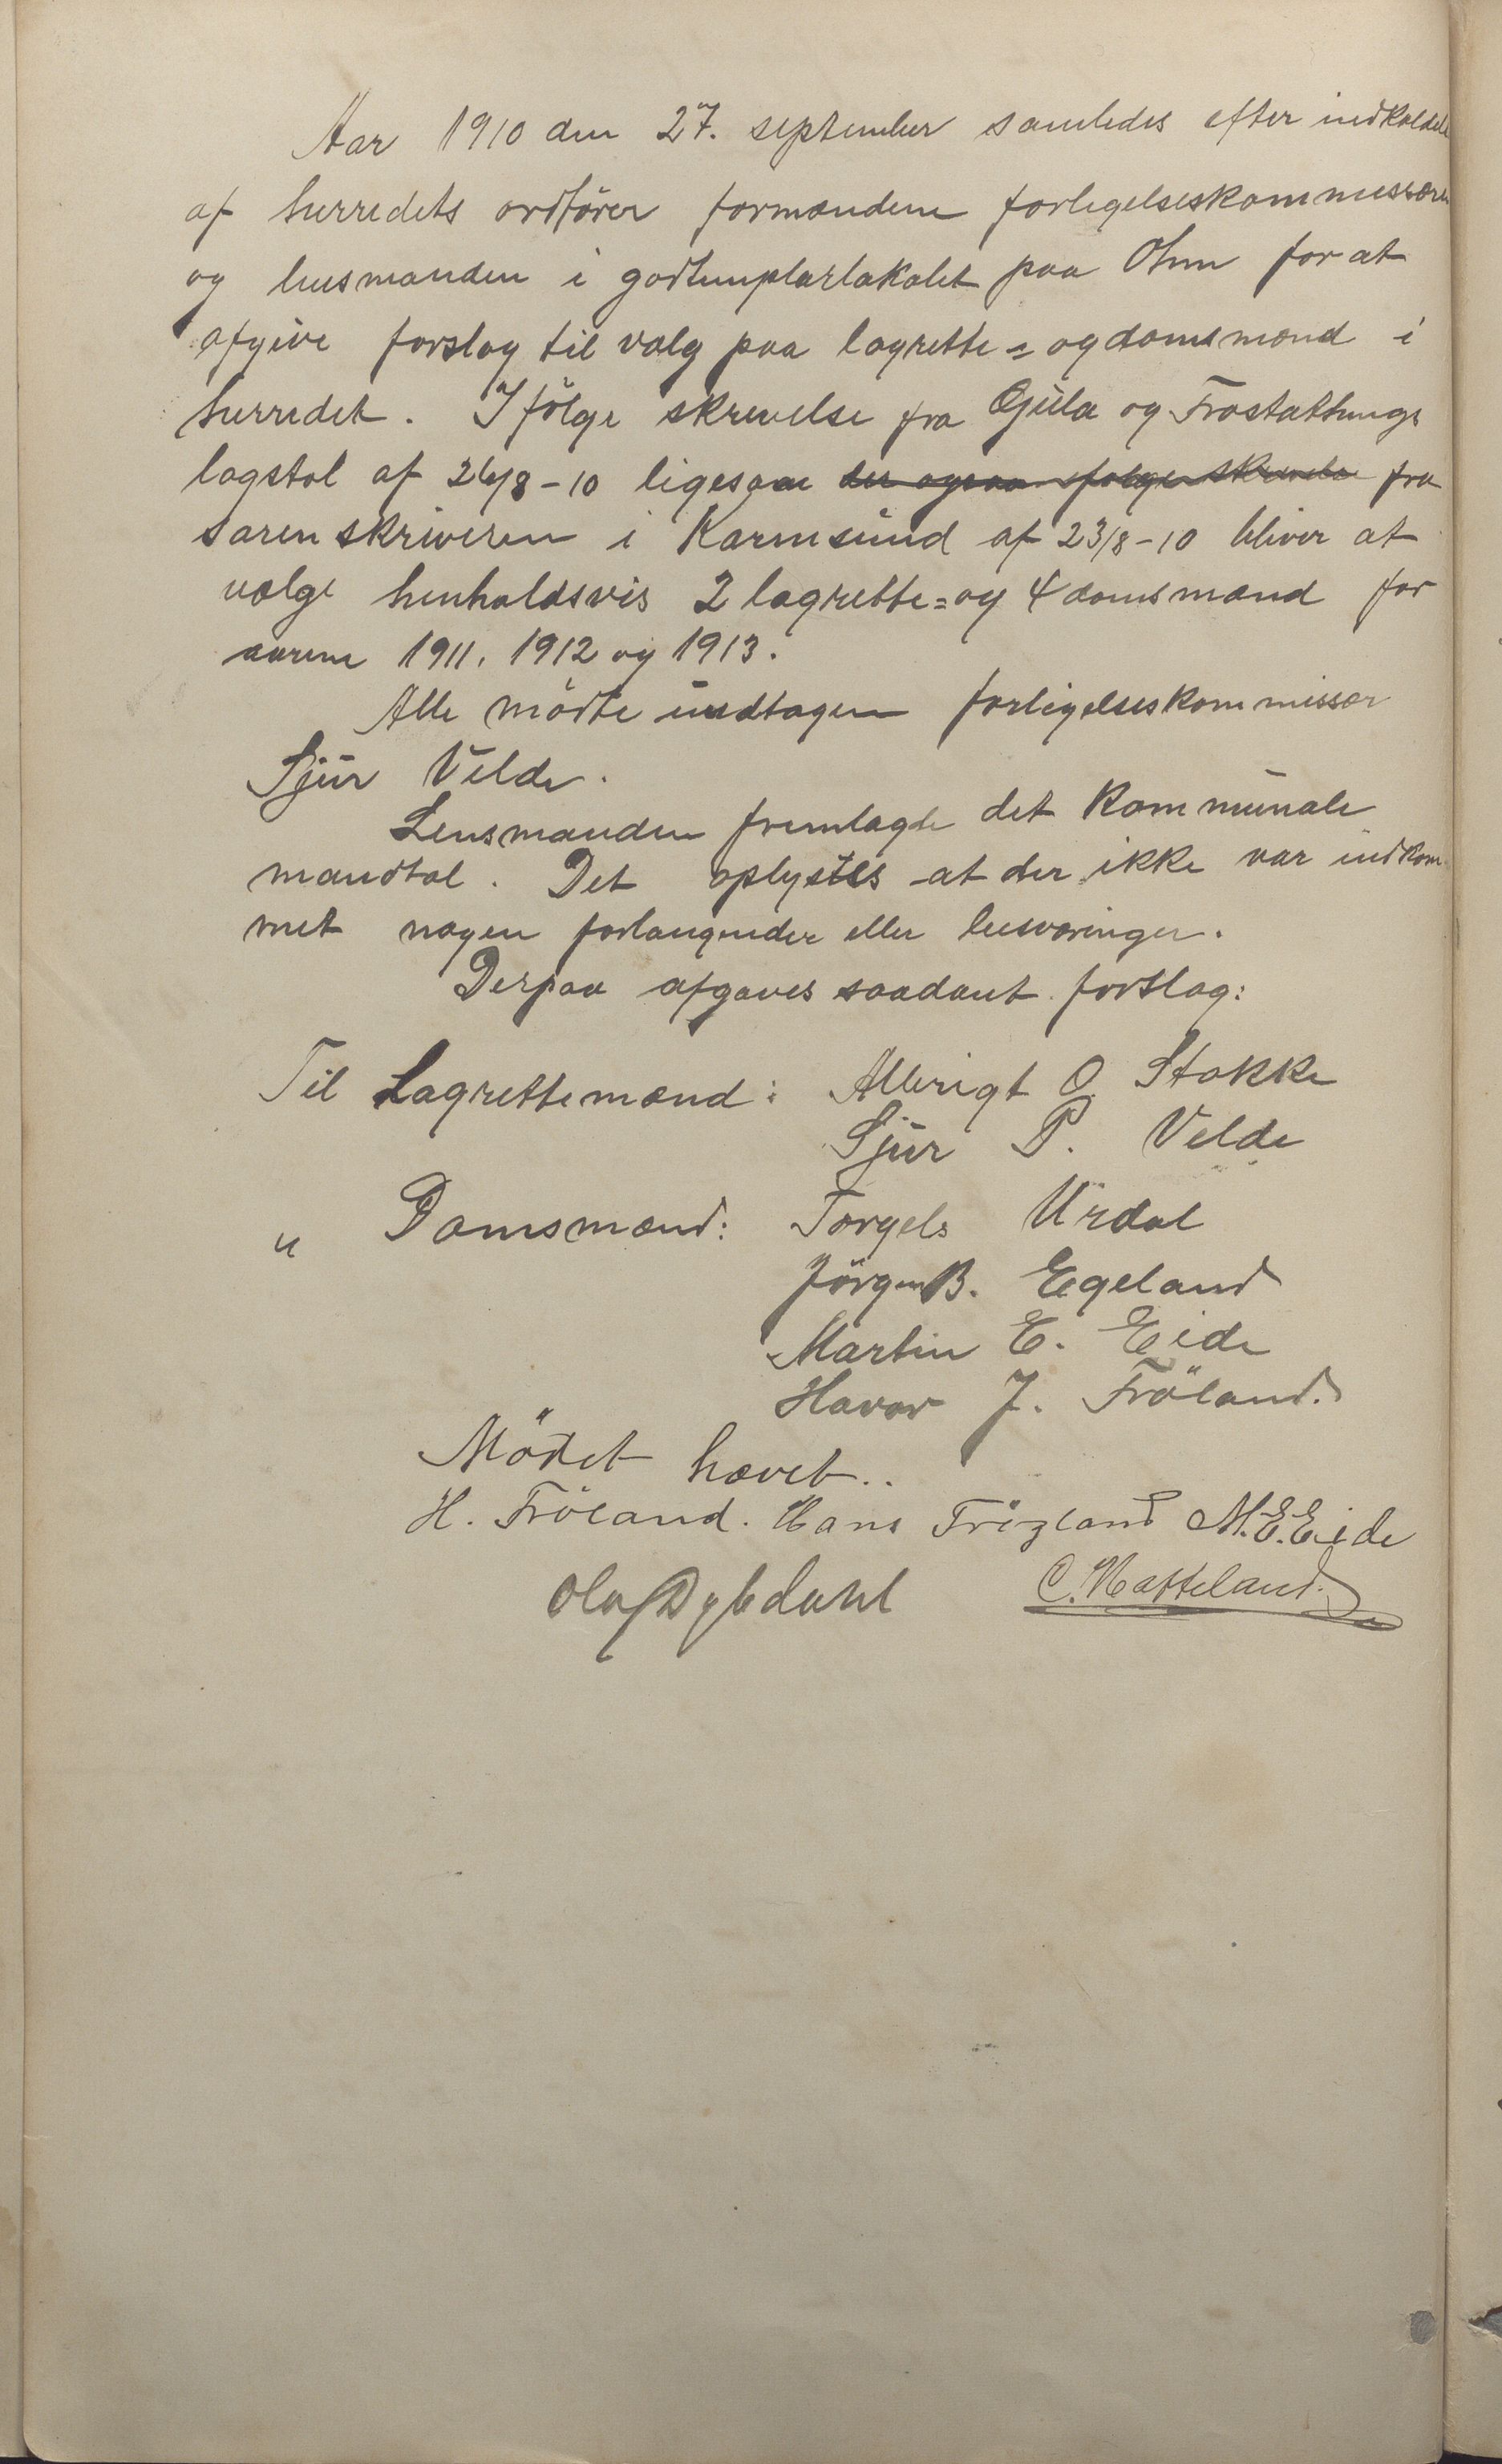 Aar 1910 den 27. september samledes efter indkaldelse
af herredets ordfører formændene forligelseskommissærer
og lensmanden i godtemplarlokalet paa Ølen for at
afgive forslag til valg paa lagrette= og domsmænd i
herredet. Ifölge skrivelse fra Gula og Frostatthings
lagstol af 26/8-10 ligesaa der ogsaa ifølge skrivelse fra
sorenskriveren i Karmsund af 23/8-10 bliver at
vælge henholdsvis 2 lagrette= og 4 domsmænd for
aarene 1911, 1912 og 1913.
Alle mödte undtagen forligelseskommissær
Sjur Velde.
Lensmanden fremlagde det kommunale
mandtal. Det oplystes at der ikke var indkom-
met nogen forlangender eller besværinger.
Derpaa afgaves saadant forslag:
Til Lagrettemænd: Albrigt O. Stokke
Sjur P. Velde
" Domsmænd: Torgels Urdal
Jörgen B. Egeland
Martin E. Eide
Havor J. Fröland.
Mödet hævet..
H. Fröland. Hans Fröland M. E. Eide
Olaf Dybdahl C. Hatteland.